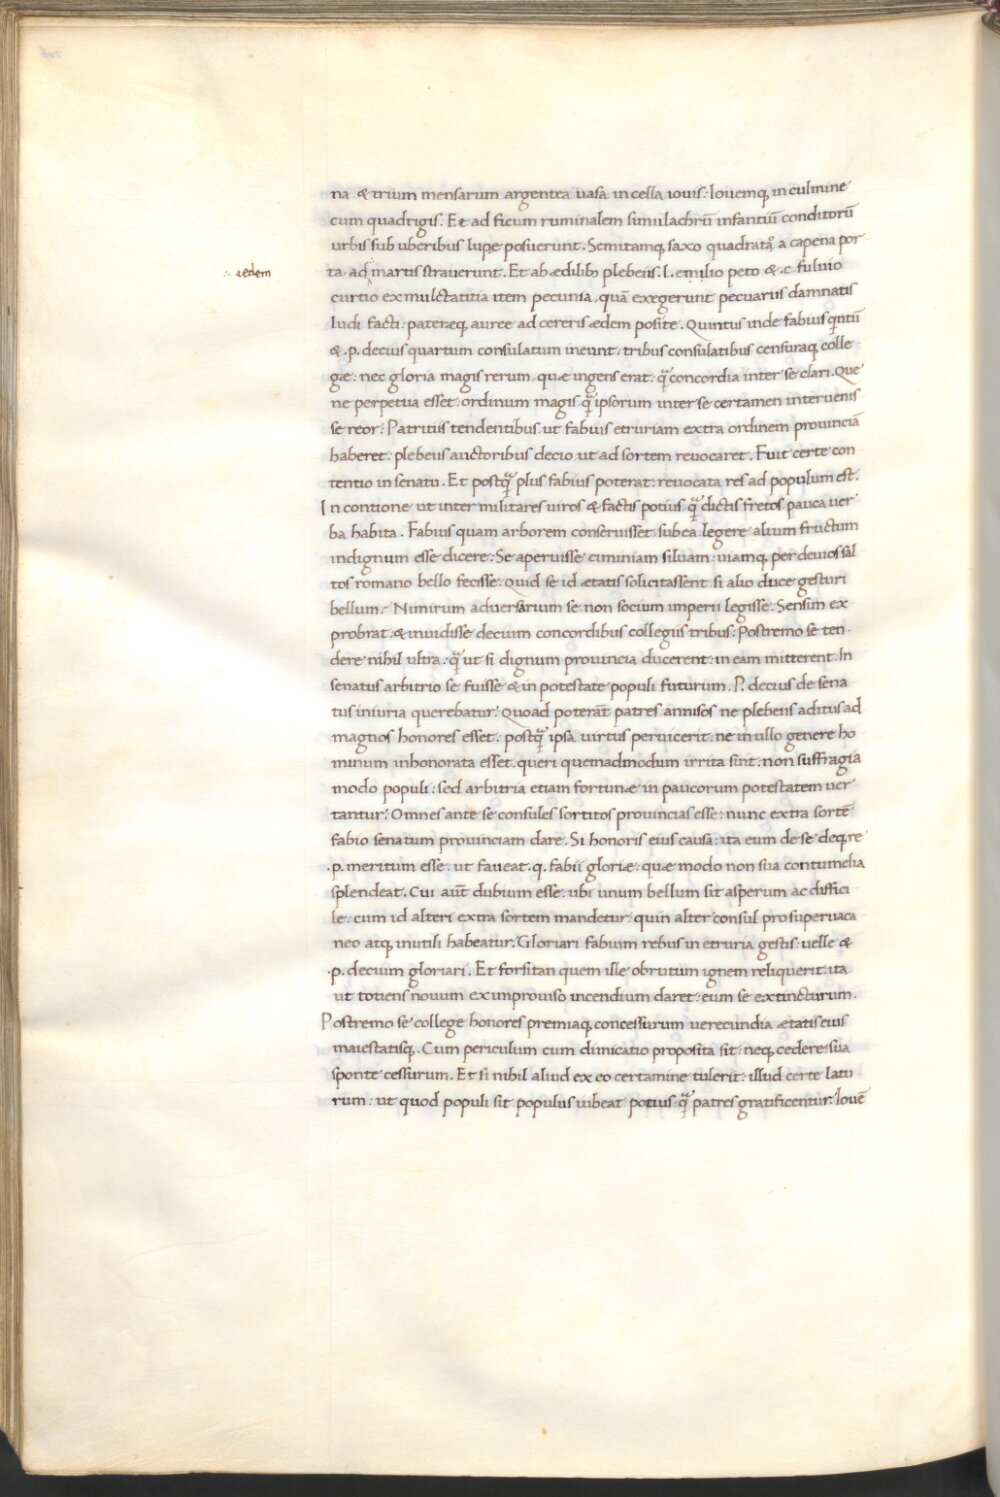 na & trium mensarum argentea uasa in cella iouis. Iouemq; in culmine
cum quadrigis. Et ad ficum ruminalem simulachrū infantiū conditorū
urbis sub uberibus lupe posuerunt. Semitamq; saxo quadrato a capena por
∴ aedem
ta ad martis strauerunt. Et ab ædilib; plebeiis. l. emilio peto &. c. fuluio
curtio ex mulctatitia item pecunia, quā exegerunt pecuariis damnatis
ludi facti: pateræq; auree ad cereris ædem posite. Quintus inde fabius quintū
&. p. decius quartum consulatum ineunt. tribus consulatibus censuraq; colle
gæ: nec gloria magis rerum, quæ ingens erat: qā concordia inter se clari. Que
ne perpetua esset: ordinum magis qā ipsorum inter se certamen interuenis
se reor: Patritiis tendentibus ut fabius etruriam extra ordinem prouinciā
haberet: plebeiis auctoribus decio ut ad sortem reuocaret. Fuit certe con
tentio in senatu. Et postqā plus fabius poterat: reuocata res ad populum est.
In contione ut inter militares uiros & factis potius qā dictis fretos pauca uer
ba habita. Fabius quam arborem conseruisset: sub ea legere alium fructum
indignum esse dicere: Se aperuisse ciminiam siluam: uiamq; per deuios sal
tos romano bello fecisse. Quid se id ætatis solicitassent si alio duce gesturi
bellum. Nimirum aduersarium se non socium imperii legisse. Sensim ex
probrat & inuidisse decium concordibus collegiis tribus. Postremo se ten
dere nihil ultra: qā ut si dignum prouincia ducerent: in eam mitterent. In
senatus arbitrio se fuisse & in potestate populi futurum. P. decius de sena
tus iniuria querebatur. Quoad poterāt patres annisos ne plebeiis aditus ad
magnos honores esset: postqā ipsa uirtus peruicerit: ne in ullo genere ho
minum inhonorata esset. queri quemadmodum irrita sint: non suffragia
modo populi: sed arbitria etiam fortunæ in paucorum potestatem uer
tantur. Omnes ante se consules sortitos prouincias esse: nunc extra sortē
fabio senatum prouinciam dare. Si honoris eius causa: ita eum de se deq; re
.p. meritum esse: ut faueat. q. fabii gloriæ: quæ modo non sua contumelia
splendeat. Cui aut̄ dubium esse: ubi unum bellum sit asperum ac diffici
le: cum id alteri extra sortem mandetur: quin alter consul pro superuaca
neo atq; inutili habeatur. Gloriari fabium rebus in etruria gestis: uelle &
.p. decium gloriari. Et forsitan quem ille obrutum ignem reliquerit: ita
ut totiens nouum ex improuiso incendium daret: eum se extincturum.
Postremo se college honores premiaq; concessurum uerecundia ætatis eius
maiestatisq;. Cum periculum cum dimicatio proposita sit: neq; cedere sua
sponte cessurum. Et si nihil aliud ex eo certamine tulerit: illud certe latu
rum: ut quod populi sit populus iubeat potius qā patres gratificentur. Iouē